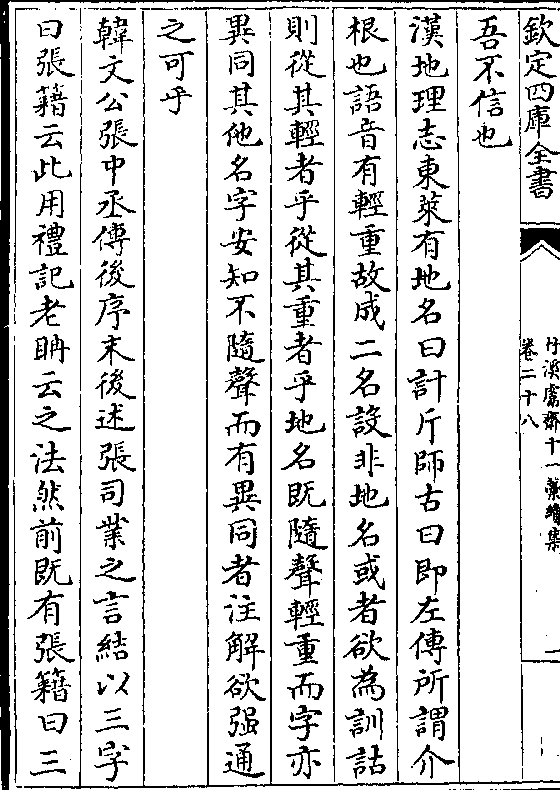 欽定四庫全書
竹溪鬳齋十一藁續集
卷二十八
吾不信也
漢地理志東萊有地名曰計斤師古曰即左傳所謂介
根也語音有輕重故成二名設非地名或者欲為訓詁
則從其輕者乎從其重者乎地名既隨聲輕重而字亦
異同其他名字安知不隨聲而有異同者注解欲强通
之可乎
韓文公張中丞傳後序末後述張司業之言結以三字
曰張籍云此用禮記老聃云之法然前既有張籍曰三